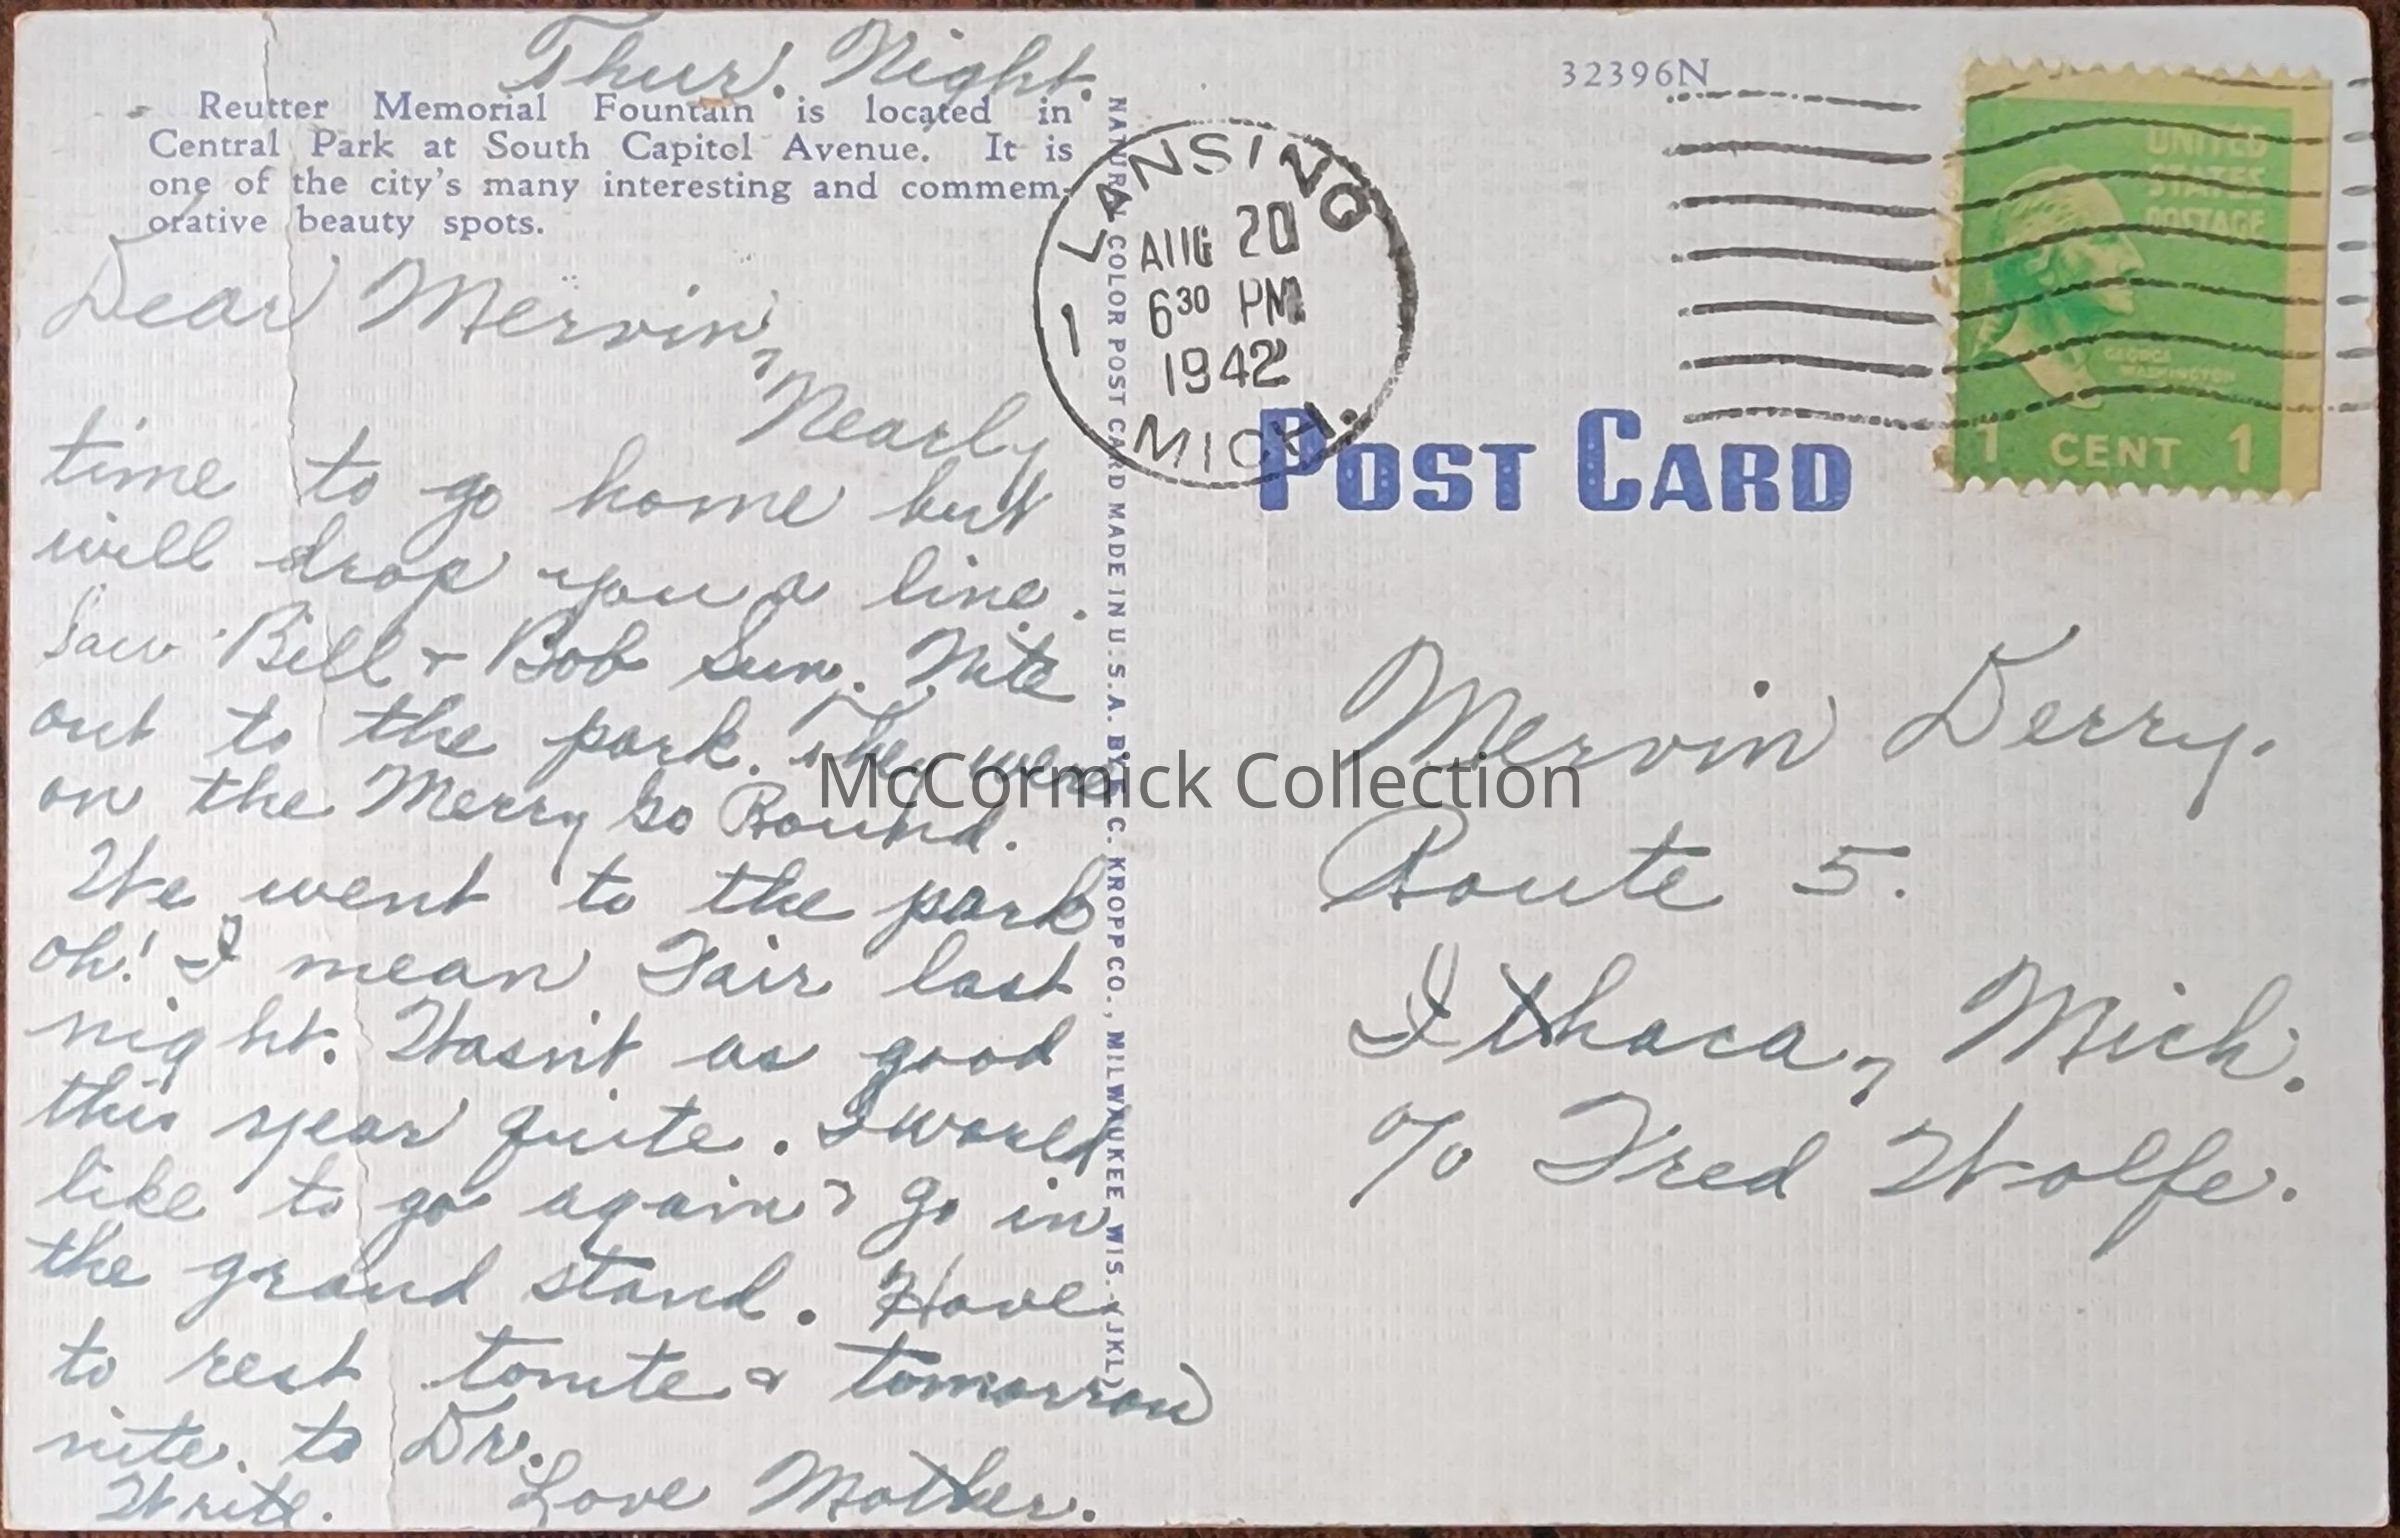 Thur. Night.
Reutter Memorial Fountain is located in
Central Park at South Capitol Avenue. It is
one of the city's many interesting and commem-
orative beauty spots.
Dear Mervin,
Nearly
time to go home but
will drop you a line.
Saw Bill & Bob Sun. Nite
out to the park. They were
on the Merry Go Round.
We went to the park
oh! I mean Fair last
night. Wasn't as good
this year quite. I would
like to go again & go in
the grand stand. Have
to rest tonite & tomorrow
nite. to Dr.
Write. Love Mother.
NATURAL COLOR POST CARD MADE IN U.S.A. BY E. C. KROPP CO., MILWAUKEE, WIS. (JKL)
LANSING
1
AUG 20
6 30 PM
1942
MICH.
32396N
UNITED
STATES
POSTAGE
GEORGE
WASHINGTON
1 CENT 1
POST CARD
Mervin Derry.
Route 5.
Ithaca, Mich.
c/o Fred Wolfe.
McCormick Collection